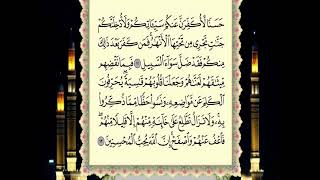 حَسَنًا لَّأُكَفِّرَنَّ عَنكُمْ سَيِّـَٔاتِكُمْ وَلَأُدْخِلَنَّكُمْ
جَنَّٰتٍ تَجْرِى مِن تَحْتِهَا ٱلْأَنْهَٰرُ فَمَن كَفَرَ بَعْدَ ذَٰلِكَ
مِنكُمْ فَقَدْ ضَلَّ سَوَآءَ ٱلسَّبِيلِ ۝ فَبِمَا نَقْضِهِم
مِّيثَٰقَهُمْ لَعَنَّٰهُمْ وَجَعَلْنَا قُلُوبَهُمْ قَٰسِيَةً يُحَرِّفُونَ
ٱلْكَلِمَ عَن مَّوَاضِعِهِۦ وَنَسُوا۟ حَظًّا مِّمَّا ذُكِّرُوا۟
بِهِۦ وَلَا تَزَالُ تَطَّلِعُ عَلَىٰ خَآئِنَةٍ مِّنْهُمْ إِلَّا قَلِيلًا مِّنْهُمْ
فَٱعْفُ عَنْهُمْ وَٱصْفَحْ إِنَّ ٱللَّهَ يُحِبُّ ٱلْمُحْسِنِينَ ۝